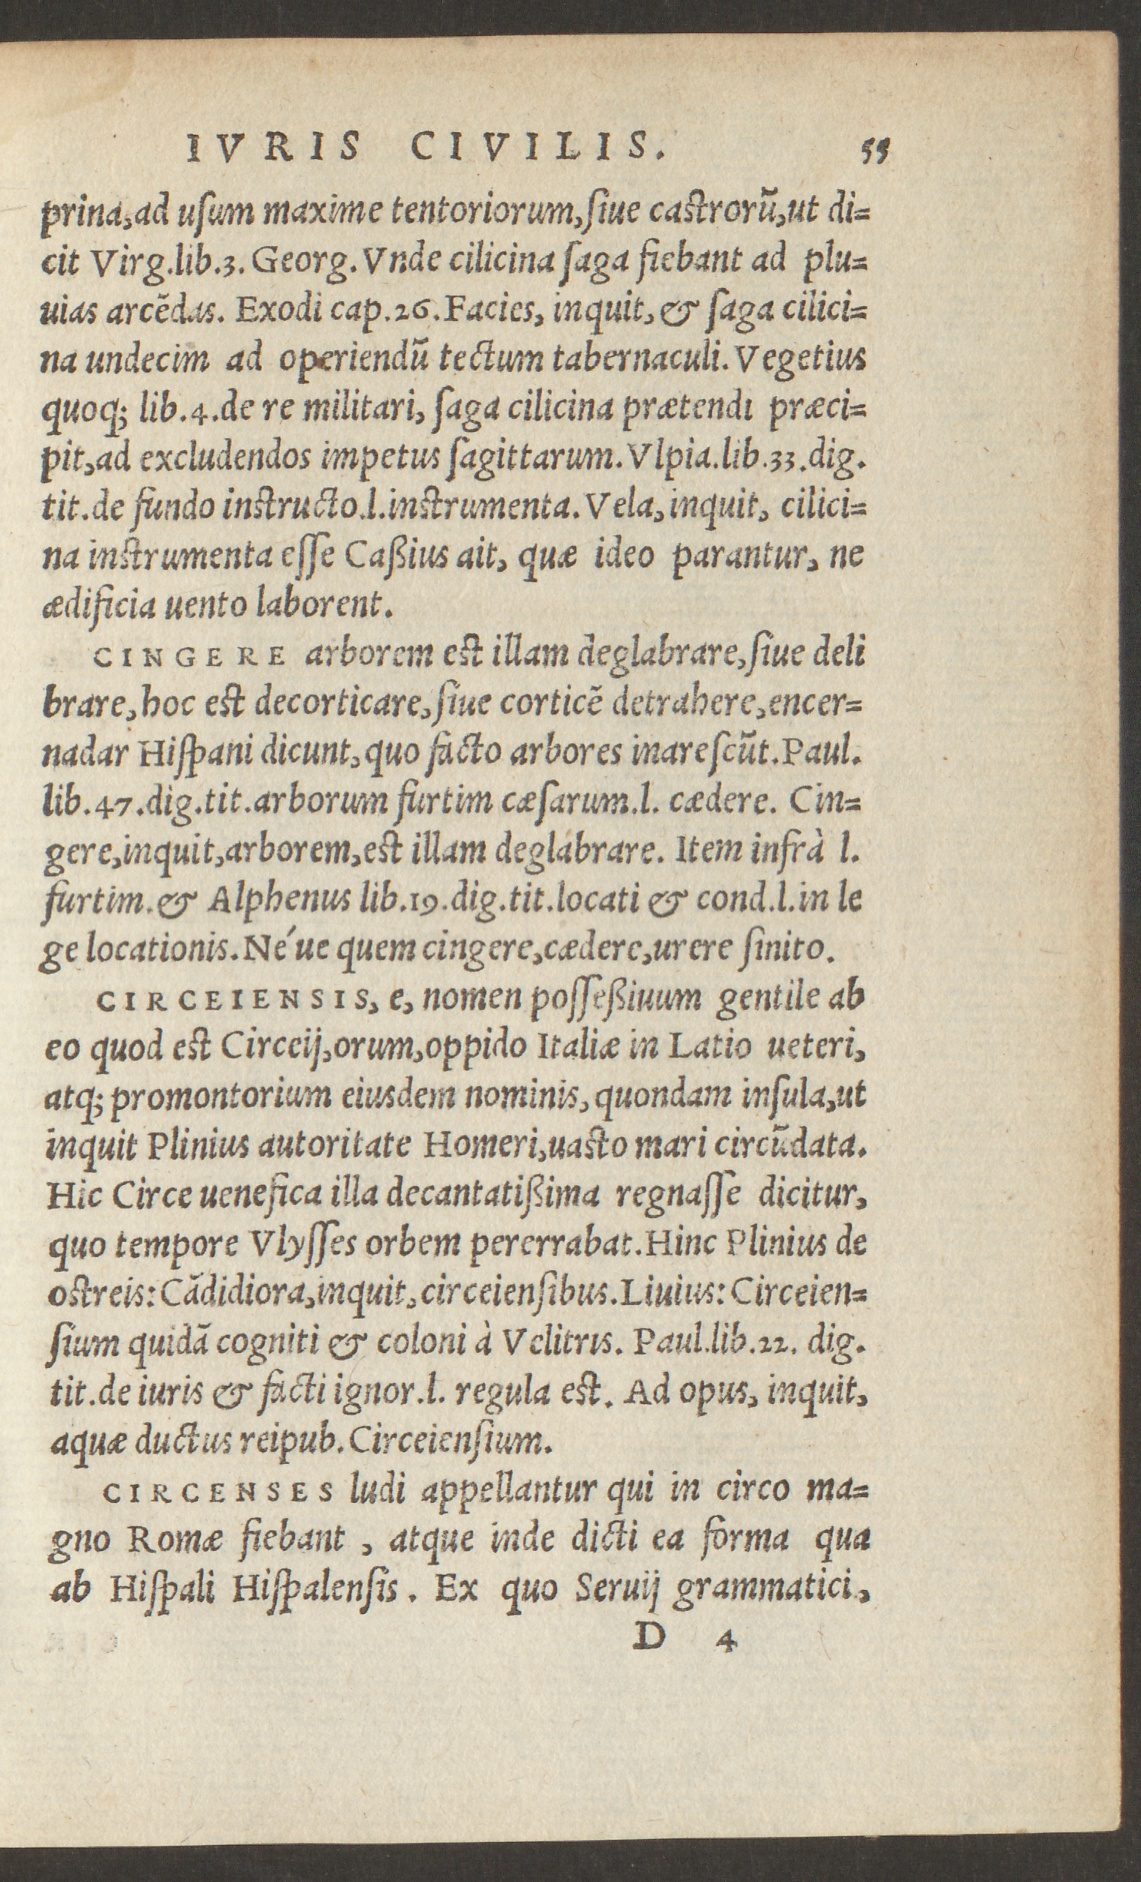 IVRIS CIVILIS. 55
prina,ad uſum maxime tentoriorum,ſiue caſtrorũ,ut di=
cit Virg.lib.3. Georg. Vnde cilicina ſaga fiebant ad plu=
uias arcẽdas. Exodi cap.26. Facies, inquit, & ſaga cilici=
na undecim ad operiendũ tectum tabernaculi. Vegetius
quoq; lib.4.de re militari, ſaga cilicina prætendi præci=
pit,ad excludendos impetus ſagittarum. Vlpia.lib.33.dig.
tit.de fundo inſtructo.l.inſtrumenta. Vela, inquit, cilici=
na inſtrumenta eſſe Caßius ait, quæ ideo parantur, ne
ædificia uento laborent.
CINGERE arborem eſt illam deglabrare,ſiue deli
brare,hoc eſt decorticare,ſiue corticẽ detrahere,encer=
nadar Hiſpani dicunt,quo facto arbores inareſcũt.Paul.
lib.47.dig.tit.arborum furtim cæſarum.l. cædere. Cin=
gere,inquit,arborem,eſt illam deglabrare. Item infrà l.
furtim.& Alphenus lib.19.dig.tit.locati & cond.l.in le
ge locationis. Né ue quem cingere,cædere,urere ſinito.
CIRCEIENSIS, e, nomen poſſeßiuum gentile ab
eo quod eſt Circeij,orum,oppido Italiæ in Latio ueteri,
atq; promontorium eiusdem nominis, quondam inſula,ut
inquit Plinius autoritate Homeri,uaſto mari circũdata.
Hic Circe uenefica illa decantatißima regnaſſe dicitur,
quo tempore Vlyſſes orbem pererrabat. Hinc Plinius de
oſtreis: Cãdidiora,inquit,circeienſibus. Liuius: Circeien=
ſium quidã cogniti & coloni à Velitris. Paul.lib.22. dig.
tit.de iuris & facti ignor.l. regula eſt. Ad opus, inquit,
aquæ ductus reipub. Circeienſium.
CIRCENSES ludi appellantur qui in circo ma=
gno Romæ fiebant , atque inde dicti ea forma qua
ab Hiſpali Hiſpalenſis. Ex quo Seruij grammatici,
D 4